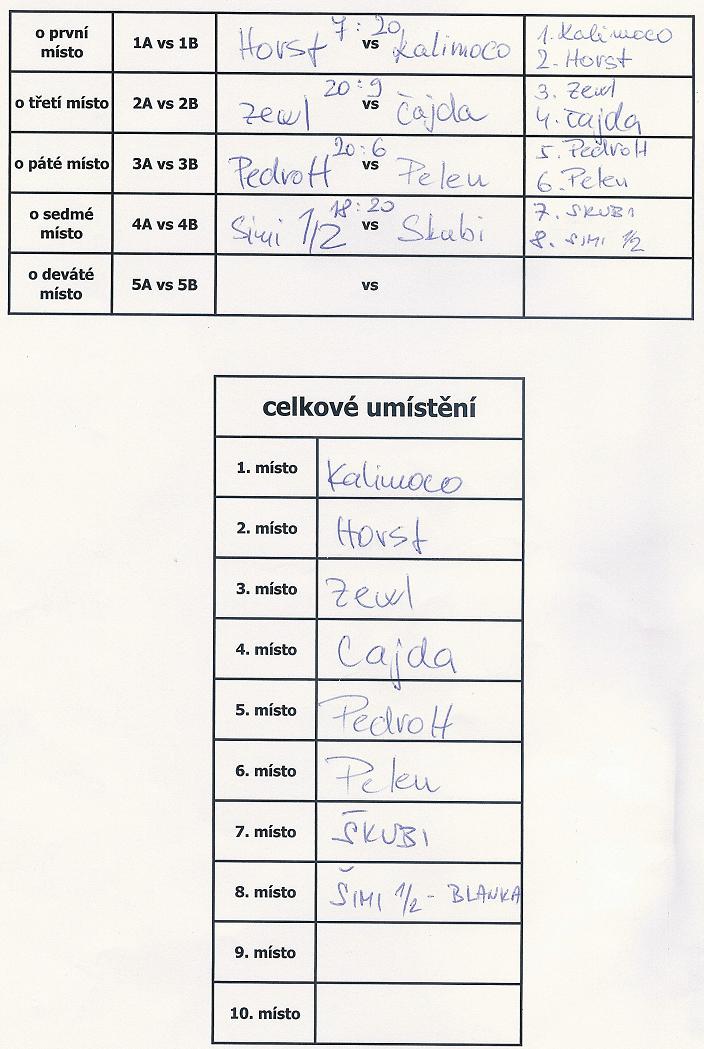 o první místo 1A vs 1B Horst 7 : 20 vs Kalimoco 1. Kalimoco
2. Horst
o třetí místo 2A vs 2B Zewl 20 : 9 vs Čajda 3. Zewl
4. Čajda
o páté místo 3A vs 3B PedroH 20 : 6 vs Pelen 5. PedroH
6. Pelen
o sedmé místo 4A vs 4B Simi 1/2 18 : 20 vs Skubi 7. SKUBI
8. SIMI 1/2
o deváté místo 5A vs 5B vs
celkové umístění
1. místo Kalimoco
2. místo Horst
3. místo Zewl
4. místo Cajda
5. místo PedroH
6. místo Pelen
7. místo ŠKUBI
8. místo ŠIMI 1/2 - BLANKA
9. místo
10. místo